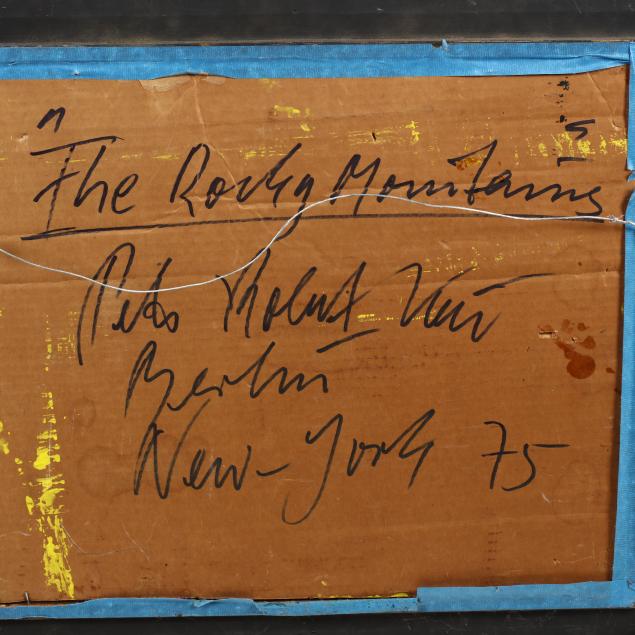 "The Rocky Mountains"
Peter Robert Keil
Berlin
New-York 75